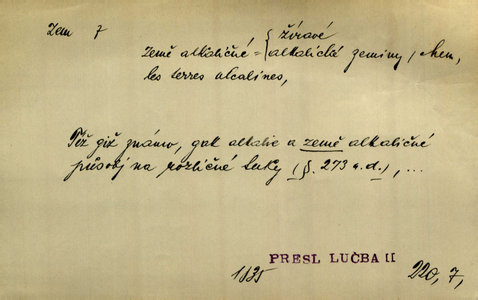 Zem 7
žíravé
Země alkaličné = { alkalická zeminy, chem,
les terres alcalines,
Též giž známo, gak alkalie a země alkaličné
působj na rozličné látky (§. 273 a.d.), ...
PRESL LUČBA II
1835
220, 7,